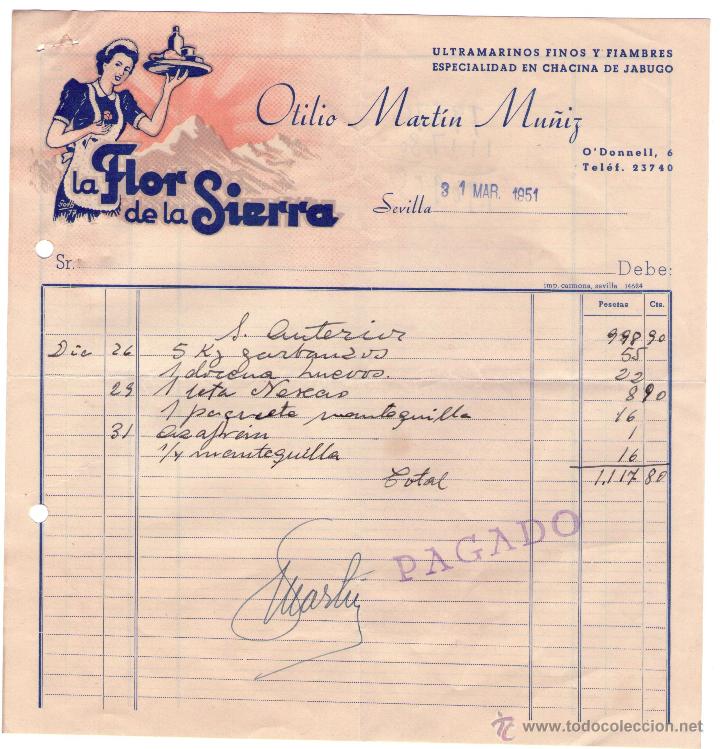 ULTRAMARINOS FINOS Y FIAMBRES
ESPECIALIDAD EN CHACINA DE JABUGO
Otilio Martín Muñiz
O'Donnell, 6
Teléf. 23740
la Flor
de la Sierra
Sevilla 31 MAR. 1951
Sr. Debe:
imp. carmona, sevilla 14624
Pesetas Cts.
S. Anterior 998 90
Dic 26 5 Kg garbanzos 55
1 docena huevos. 22
29 1 lata Nescao 8 90
1 paquete mantequilla 16
31 azafrán 1
1/4 mantequilla 16
Total 1.117 80
PAGADO
Martín
www.todocoleccion.net